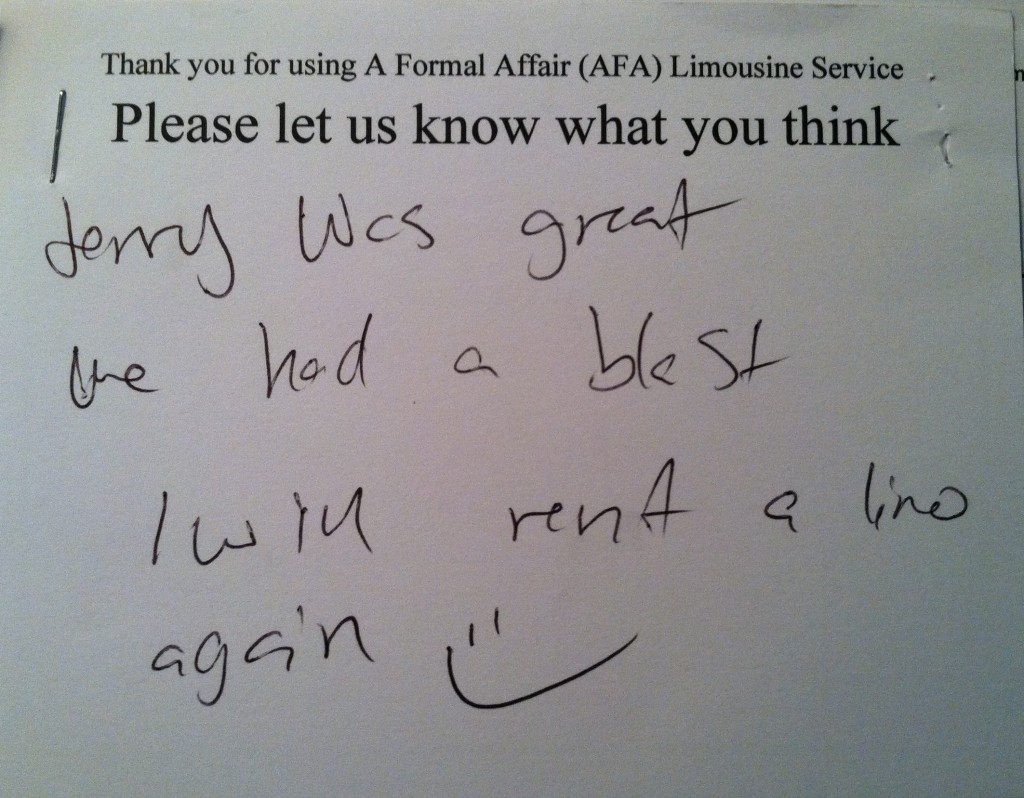 Thank you for using A Formal Affair (AFA) Limousine Service
Please let us know what you think
Jerry was great
we had a blast
I will rent a limo
again